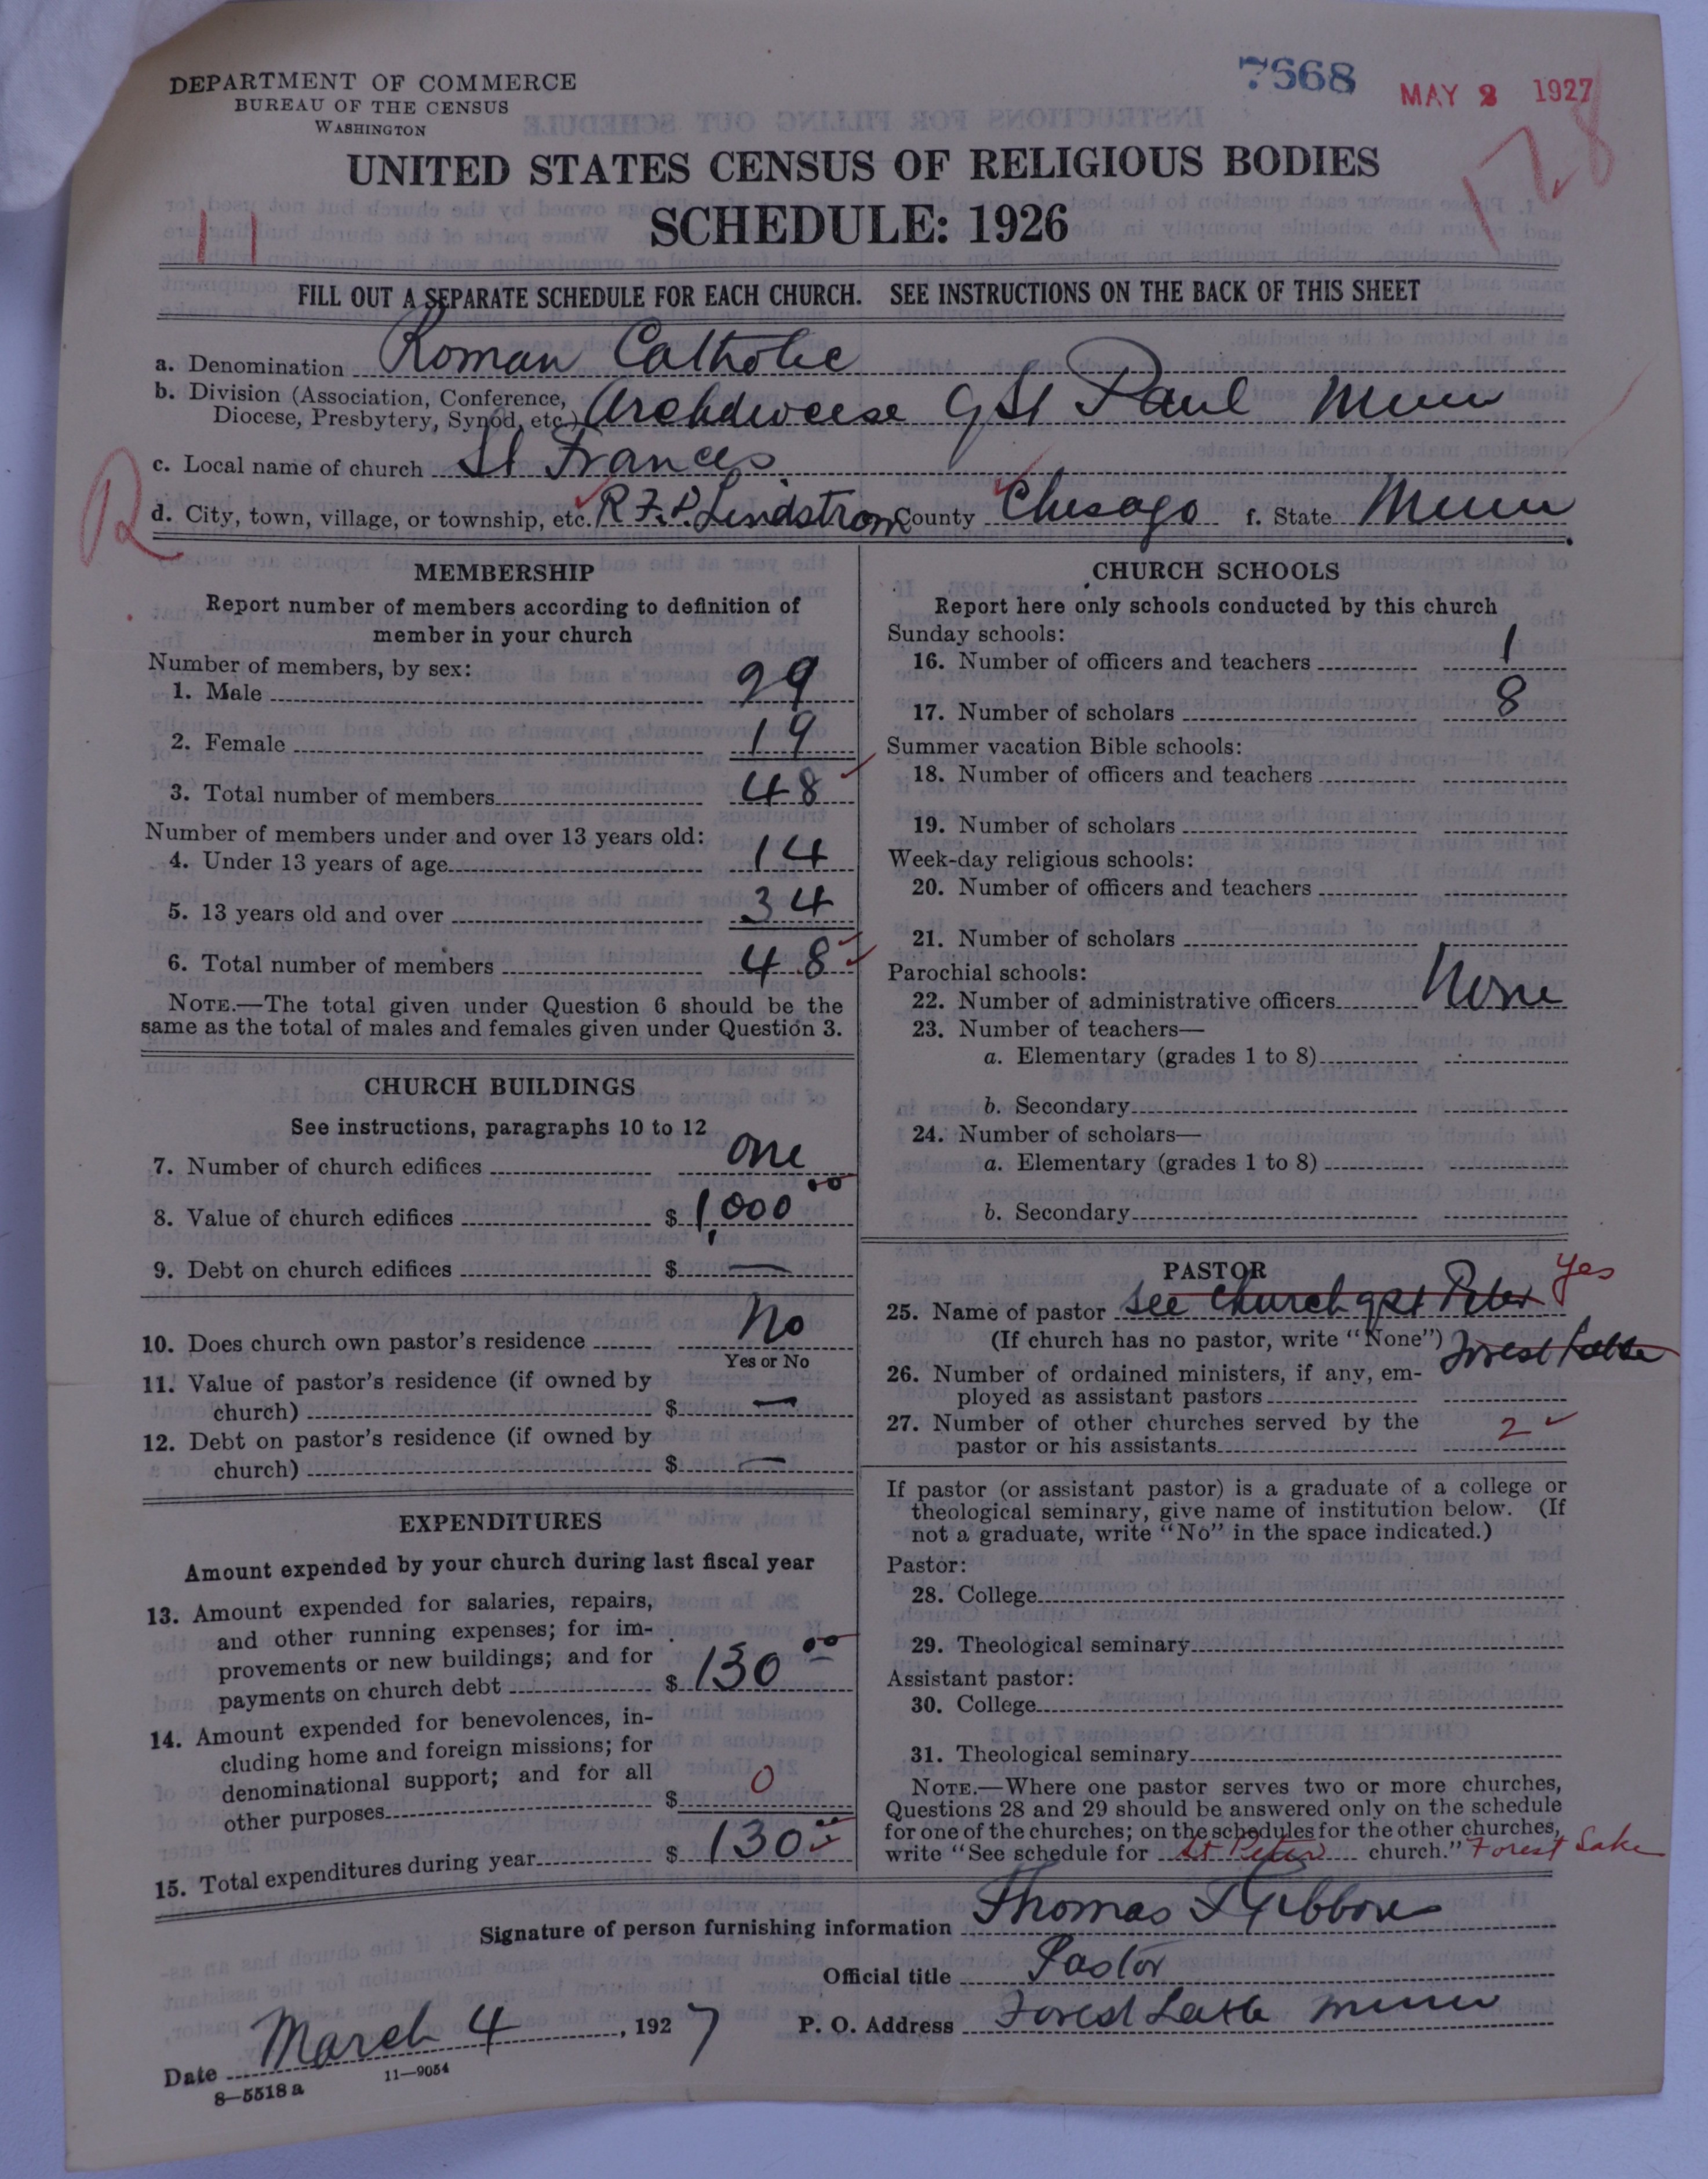 DEPARTMENT OF COMMERCE
BUREAU OF THE CENSUS
WASHINGTON
7568
MAY 2 1927
128
UNITED STATES CENSUS OF RELIGIOUS BODIES
11
SCHEDULE: 1926
FILL OUT A SEPARATE SCHEDULE FOR EACH CHURCH. SEE INSTRUCTIONS ON THE BACK OF THIS SHEET
a. Denomination Roman Catholic
b. Division (Association, Conference, Diocese, Presbytery, Synod, etc.) Archdiocese of St Paul Minn
c. Local name of church St Frances
R
d. City, town, village, or township, etc. R.F.D. Lindstrom County Chisago f. State Minn
MEMBERSHIP
Report number of members according to definition of
member in your church
Number of members, by sex:
1. Male 29
2. Female 19
3. Total number of members 48
Number of members under and over 13 years old:
4. Under 13 years of age 14
5. 13 years old and over 34
6. Total number of members 48
NOTE.—The total given under Question 6 should be the
same as the total of males and females given under Question 3.
CHURCH BUILDINGS
See instructions, paragraphs 10 to 12
7. Number of church edifices one
8. Value of church edifices $ 1,000 00
9. Debt on church edifices $ —
10. Does church own pastor's residence No
Yes or No
11. Value of pastor's residence (if owned by
church) $ —
12. Debt on pastor's residence (if owned by
church) $ —
EXPENDITURES
Amount expended by your church during last fiscal year
13. Amount expended for salaries, repairs,
and other running expenses; for im-
provements or new buildings; and for
payments on church debt $ 130 00
14. Amount expended for benevolences, in-
cluding home and foreign missions; for
denominational support; and for all
other purposes $ 0
15. Total expenditures during year $ 130 00
CHURCH SCHOOLS
Report here only schools conducted by this church
Sunday schools:
16. Number of officers and teachers 1
17. Number of scholars 8
Summer vacation Bible schools:
18. Number of officers and teachers
19. Number of scholars
Week-day religious schools:
20. Number of officers and teachers
21. Number of scholars
Parochial schools:
22. Number of administrative officers None
23. Number of teachers—
a. Elementary (grades 1 to 8)
b. Secondary
24. Number of scholars—
a. Elementary (grades 1 to 8)
b. Secondary
PASTOR
25. Name of pastor See Church of St Peter yes
(If church has no pastor, write "None") Forest Lake
26. Number of ordained ministers, if any, em-
ployed as assistant pastors
27. Number of other churches served by the
pastor or his assistants 2
If pastor (or assistant pastor) is a graduate of a college or
theological seminary, give name of institution below. (If
not a graduate, write "No" in the space indicated.)
Pastor:
28. College
29. Theological seminary
Assistant pastor:
30. College
31. Theological seminary
NOTE.—Where one pastor serves two or more churches,
Questions 28 and 29 should be answered only on the schedule
for one of the churches; on the schedules for the other churches,
write "See schedule for St Peter church." Forest Lake
Signature of person furnishing information Thomas F Gibbons
Official title Pastor
Date March 4, 1927 P. O. Address Forest Lake Minn
8—5518 a 11—9054